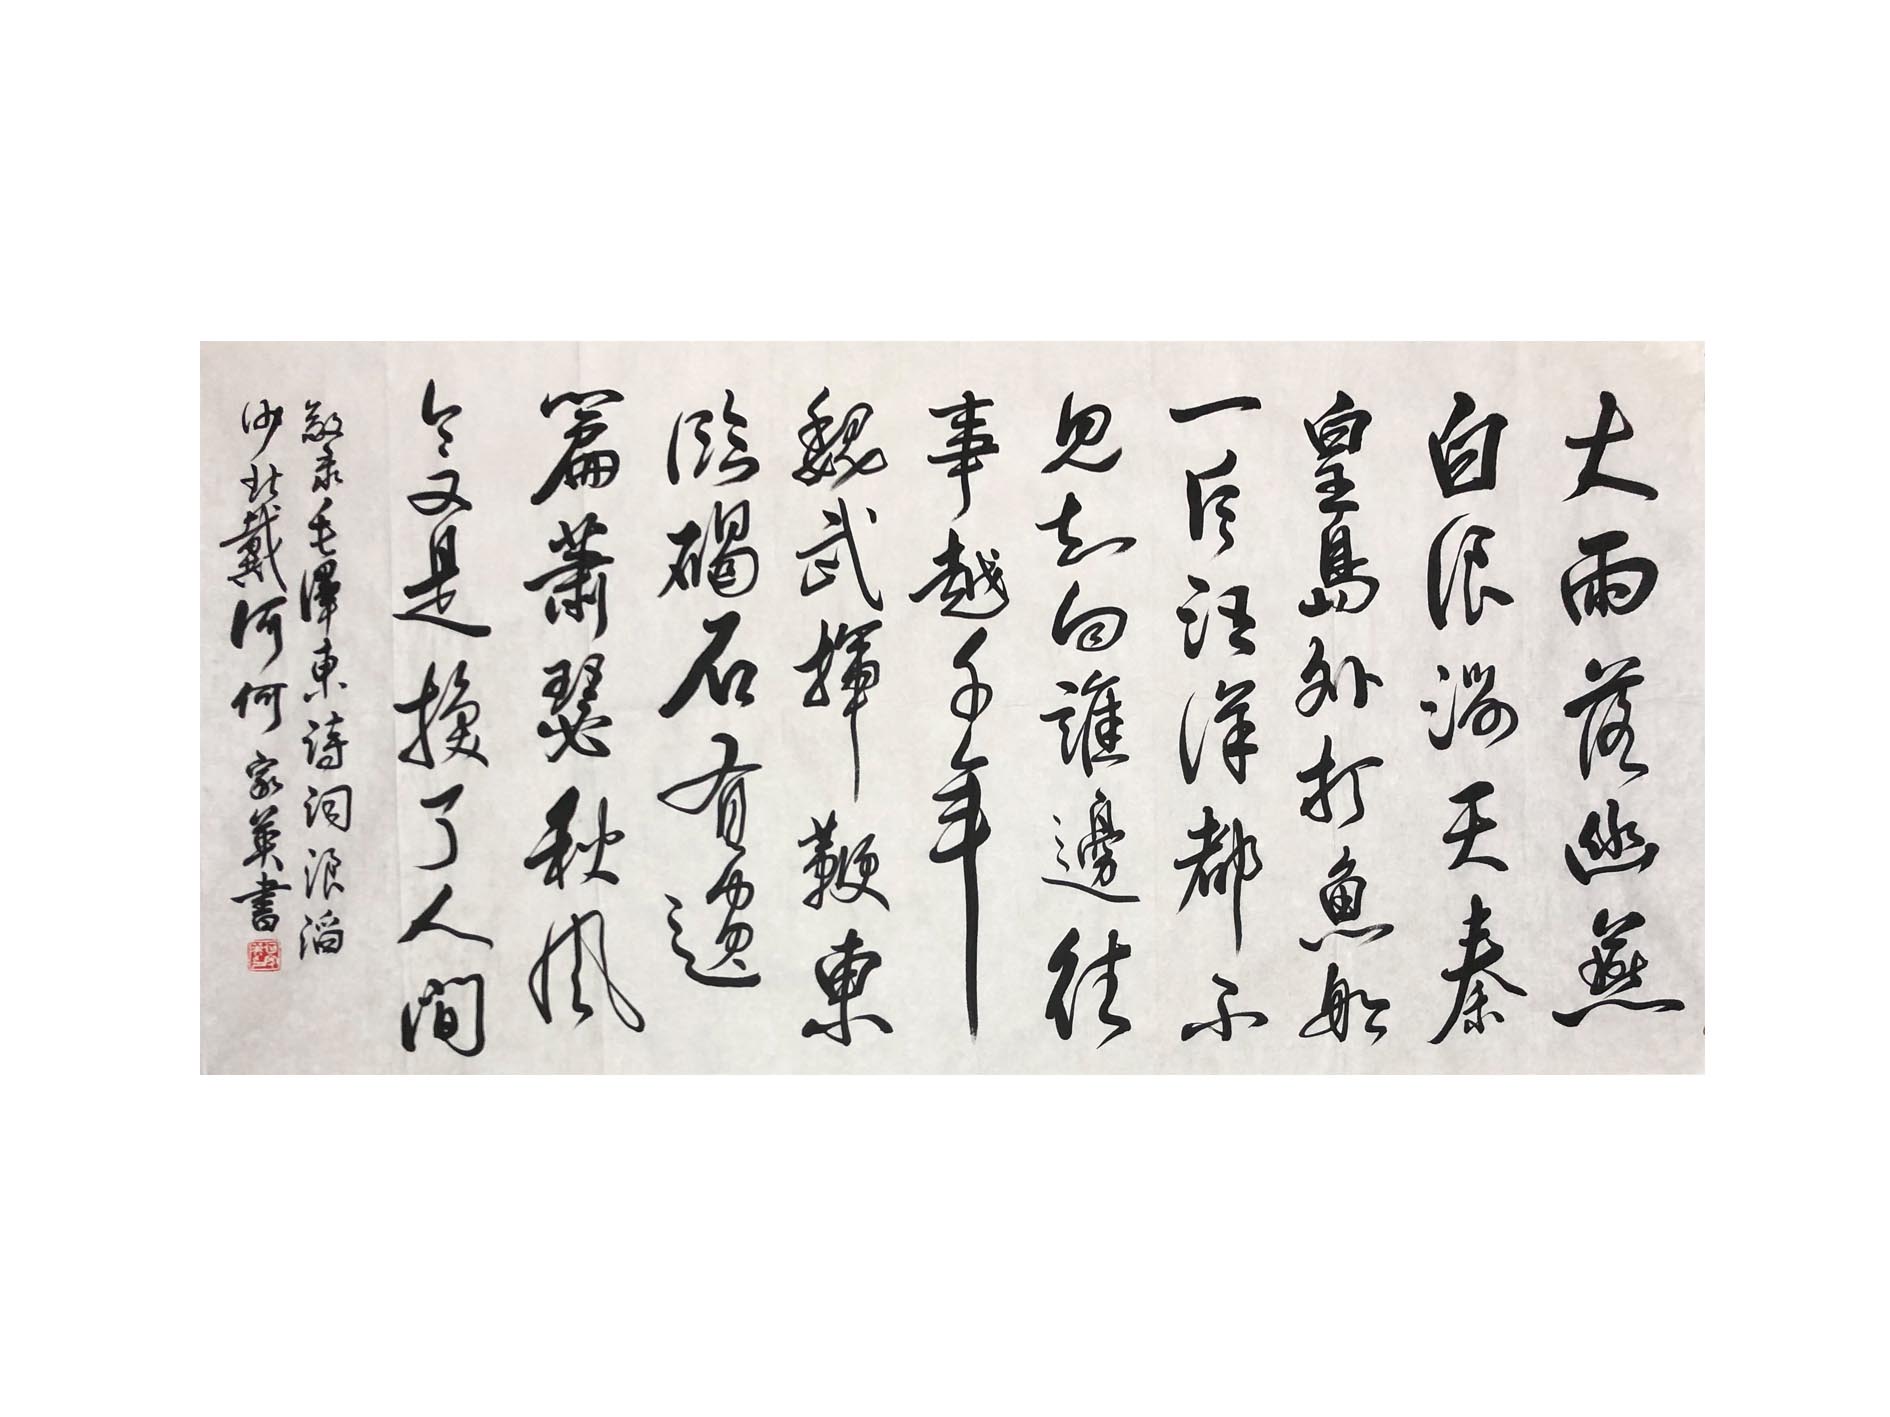 大雨落幽燕
白浪滔天秦
皇島外打魚船
一片汪洋都不
見知向誰邊往
事越千年
魏武揮鞭東
臨碣石有遺
篇蕭瑟秋風
今又是換了人間
敬录毛澤東詩詞浪滔
沙北戴河何家英書